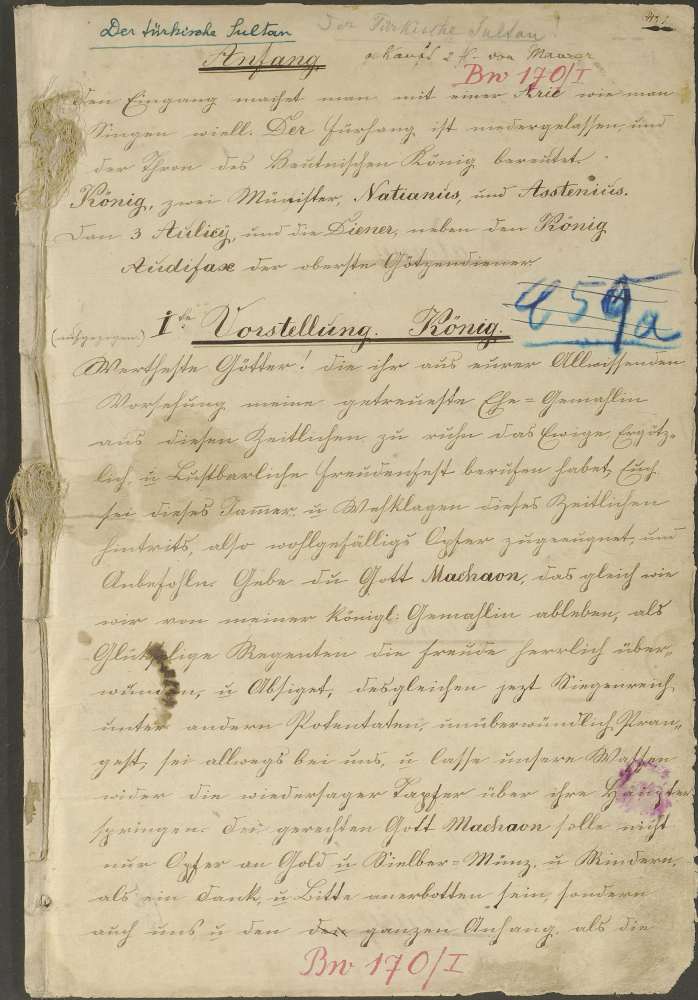 Der türkische Sultan
Der Türkische Sultan
Anfang
von Maurer
Bn 170/I
den Eingang machet man mit einer Arie wie man
Singen wiell. Der Fürhang ist niedergelassen, und
der Thron des König bereutet.
König, zwei Münister, Natianus, und Asstenius.
Dan 3 Aulicÿ, und die Diener, neben den König
Audifax der oberste Götzendiener
(aufgezogen.) Ite Vorstellung. König.
Wertheste Götter! die ihr aus eurer Allwissenden
Vorsehung meine getreueste Ehe=Gemahlin
aus diesen Zeitlichen zu ruhn das Ewige, Ergötz=
lich, u Lustbarliche Freudenfest berufen habet, Euch
sei dieses Jamer, u Wehklagen dieses Zeitlichen
Hintrits, also wohlgefälligs Opfer zugeeugnet, und
Anbefohln. Gebe du Gott Machaon, das gleich wie
wir von meiner königl: Gemahlin ableben, als
Glückselige Regenten die Freude herrlich über=
wunden, u Absiget, desgleichen jezt Siegenreich
unter andern Potentaten, unüberwündlich Pran=
gest, sei allwegs bei uns, u lasse unsere Waffen
wider die wiedersager Tapfer über ihre Häupter
springen. Dir gerechten Gott Machaon solle nicht
nur Opfer an Gold u Sielber=Münz, u Rindern,
als ein Dank, u Bitte anerbotten sein, sondern
auch uns u den den ganzen Anhang, als die
Bn 170/I